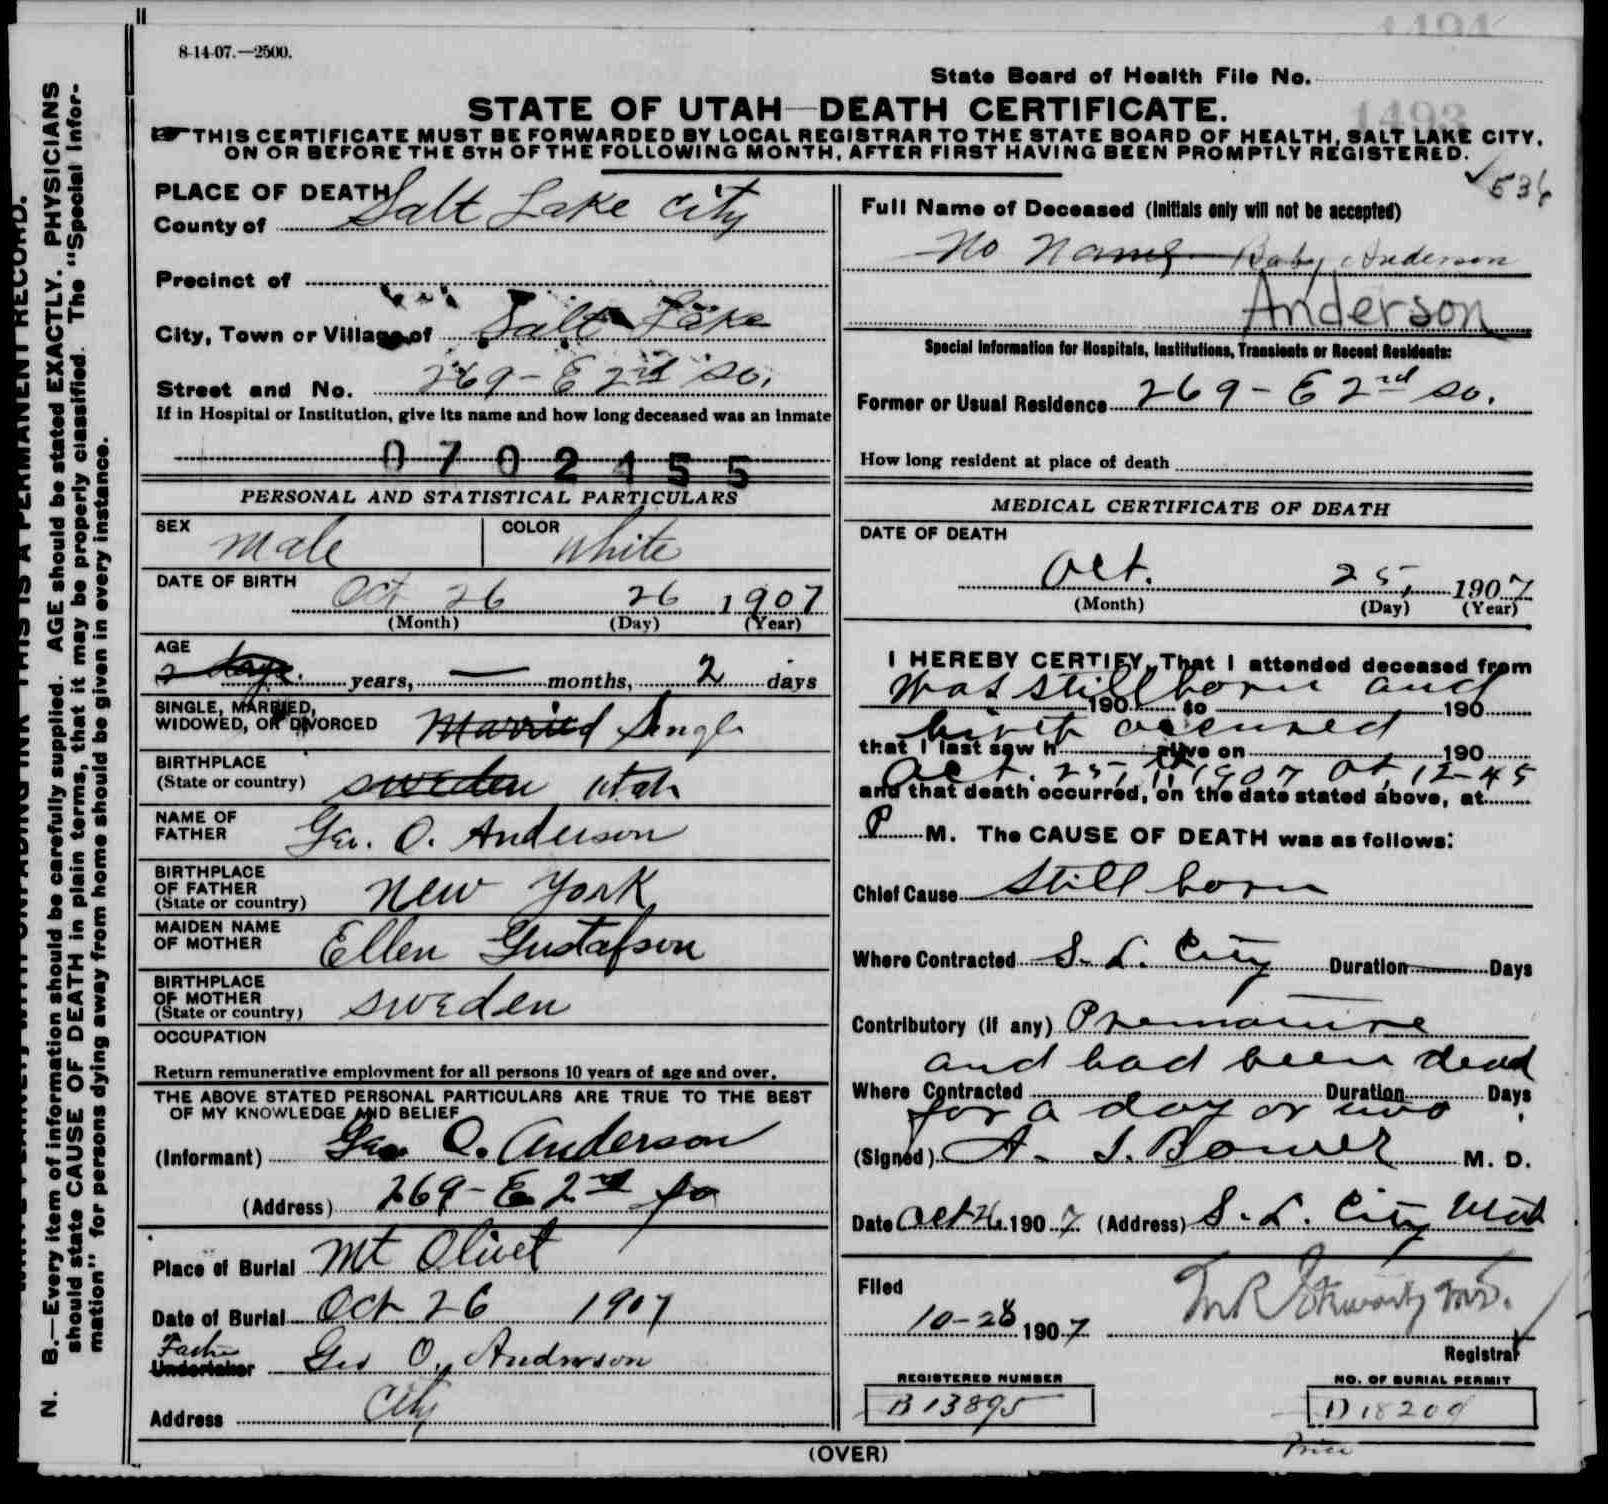 1494
8-14-07.—2500.
State Board of Health File No.
1493
STATE OF UTAH—DEATH CERTIFICATE.
THIS CERTIFICATE MUST BE FORWARDED BY LOCAL REGISTRAR TO THE STATE BOARD OF HEALTH, SALT LAKE CITY,
ON OR BEFORE THE 5TH OF THE FOLLOWING MONTH, AFTER FIRST HAVING BEEN PROMPTLY REGISTERED.
✓536
PLACE OF DEATH
County of Salt Lake City
Precinct of
City, Town or Village of Salt Lake
Street and No. 269 - E 2nd So.
If in Hospital or Institution, give its name and how long deceased was an inmate
0702455
PERSONAL AND STATISTICAL PARTICULARS
SEX Male COLOR White
DATE OF BIRTH
Oct 26 26 1907
(Month) (Day) (Year)
AGE
2 days years, — months, 2 days
SINGLE, MARRIED,
WIDOWED, OR DIVORCED Married Single
BIRTHPLACE
(State or country) Sweden Utah
NAME OF
FATHER Geo. O. Anderson
BIRTHPLACE
OF FATHER
(State or country) New York
MAIDEN NAME
OF MOTHER Ellen Gustafson
BIRTHPLACE
OF MOTHER
(State or country) Sweden
OCCUPATION
Return remunerative employment for all persons 10 years of age and over.
THE ABOVE STATED PERSONAL PARTICULARS ARE TRUE TO THE BEST
OF MY KNOWLEDGE AND BELIEF
(Informant) Geo O. Anderson
(Address) 269 - E 2nd So
Place of Burial Mt Olivet
Date of Burial Oct 26 1907
Father
Undertaker Geo O. Anderson
Address City
Full Name of Deceased (Initials only will not be accepted)
No Name Baby Anderson
Anderson
Special Information for Hospitals, Institutions, Transients or Recent Residents:
Former or Usual Residence 269 - E 2nd So.
How long resident at place of death
MEDICAL CERTIFICATE OF DEATH
DATE OF DEATH
Oct. 25, 1907
(Month) (Day) (Year)
I HEREBY CERTIFY, That I attended deceased from
Was still born and
190 to 190
birth occured
that I last saw h alive on 190
Oct. 25, 1907 at 12-45
and that death occurred, on the date stated above, at
P M. The CAUSE OF DEATH was as follows:
Chief Cause Still born
Where Contracted S. L. City Duration Days
Contributory (if any) Premature
and had been dead
Where Contracted Duration Days
for a day or two.
(Signed) M. D.
Date Oct 26 1907 (Address) S. L. City Utah
Filed
10-28 1907
Registrar
REGISTERED NUMBER
B13895
NO. OF BURIAL PERMIT
D18209
(OVER)
THIS IS A PERMANENT RECORD.
N. B.—Every item of information should be carefully supplied. AGE should be stated EXACTLY. PHYSICIANS
should state CAUSE OF DEATH in plain terms, that it may be properly classified. The "Special Infor-
mation" for persons dying away from home should be given in every instance.